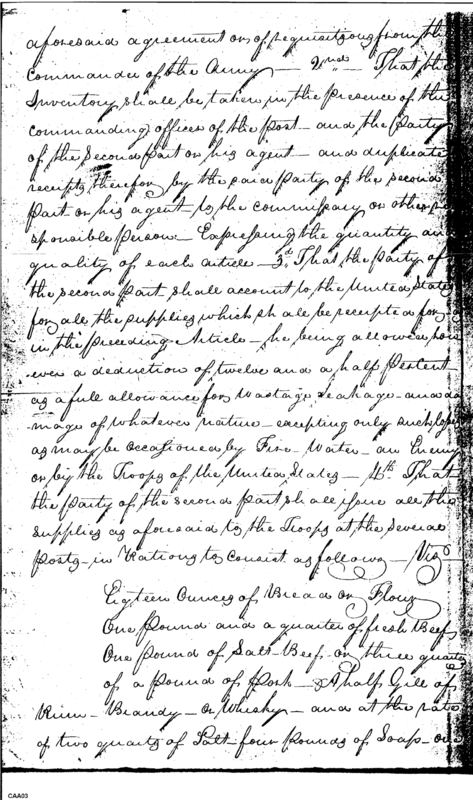 aforesaid agreement or of requisitions from the
Commander of the Army — 2nd That the
Inventory shall be taken in the presence of the
commanding officer of the Post – and the Party
of the Second Part or his agent – and duplicate
receipts therefor by the said Party of the second
Part or his agent to the commissary or other re
sponsible Person – Expressing the quantity and
quality of each article – 3d. That the Party of
the second Part shall account to the United States
for all the supplies which shall be receipted for
in the preceding Article – he being allowed how
ever a deduction of twelve and a half Percent
as a full allowance for wastage leakage – and da
mage of whatever nature – excepting only such loss
as may be occasioned by Fire – Water – an Enemy
or by the Troops of the United States – 4th. That
the party of the second Part shall issue all the
supplies as aforesaid to the Troops at the several
posts – in Rations to consist as follows – Viz
Eigteen Ounces of Bread or Flour
One Pound and a quarter of fresh Beef
One pound of Salt Beef or three quarte
of a Pound of Pork – & A half Gill of
Rum – Brandy – or Whisky – and at the rate
of two quarts of Salt – four Pounds of Soap – one
CAA03